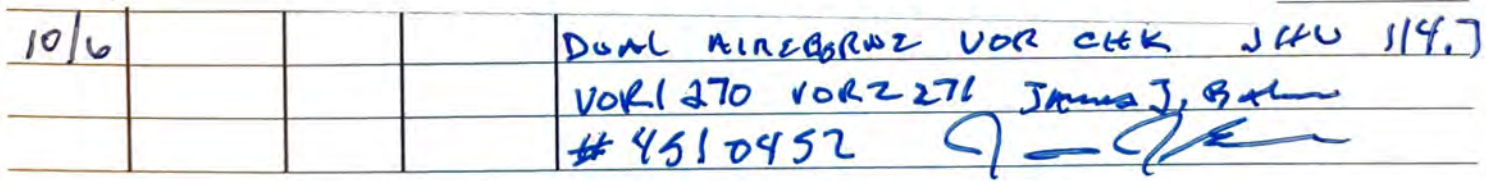 10/6 DUAL AIREBORNE VOR CHK JHW 114.7
VOR1 270 VOR2 271 James J.
# 4510452